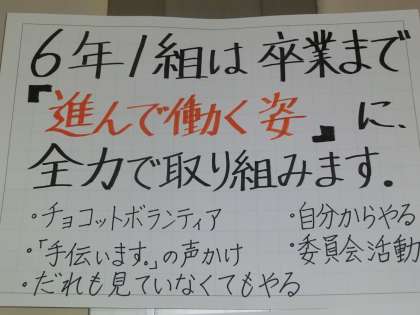 6年1組は卒業まで
『進んで働く姿』に、
全力で取り組みます。
・チョコットボランティア
・自分からやる
・「手伝います。」の声かけ
・委員会活動
・だれも見ていなくてもやる